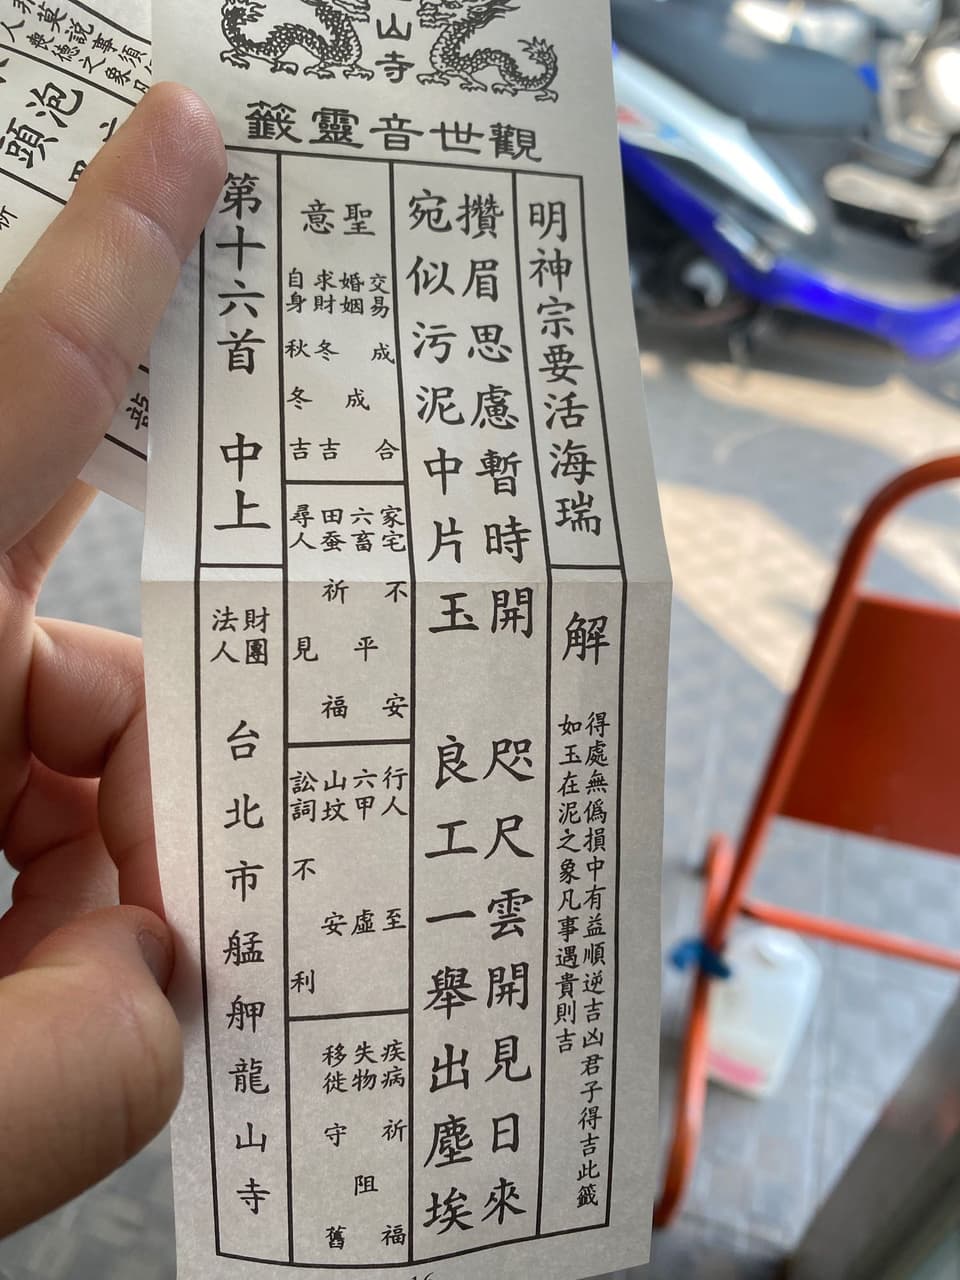 山寺
觀世音靈籤
明神宗要活海瑞
解
得處無僞損中有益順逆吉凶君子得吉此籤
如玉在泥之象凡事遇貴則吉
攢眉思慮暫時開 咫尺雲開見日來
宛似污泥中片玉 良工一舉出塵埃
聖意
交易成合
婚姻成
求財冬吉
自身秋冬吉
家宅不安
六畜平
田蚕祈福
尋人見
行人至
六甲虛
山坟安
訟詞不利
疾病祈福
失物阻
移徙守舊
第十六首 中上
財團法人 台北市艋舺龍山寺
莫說事須
喪德之象
泡頭